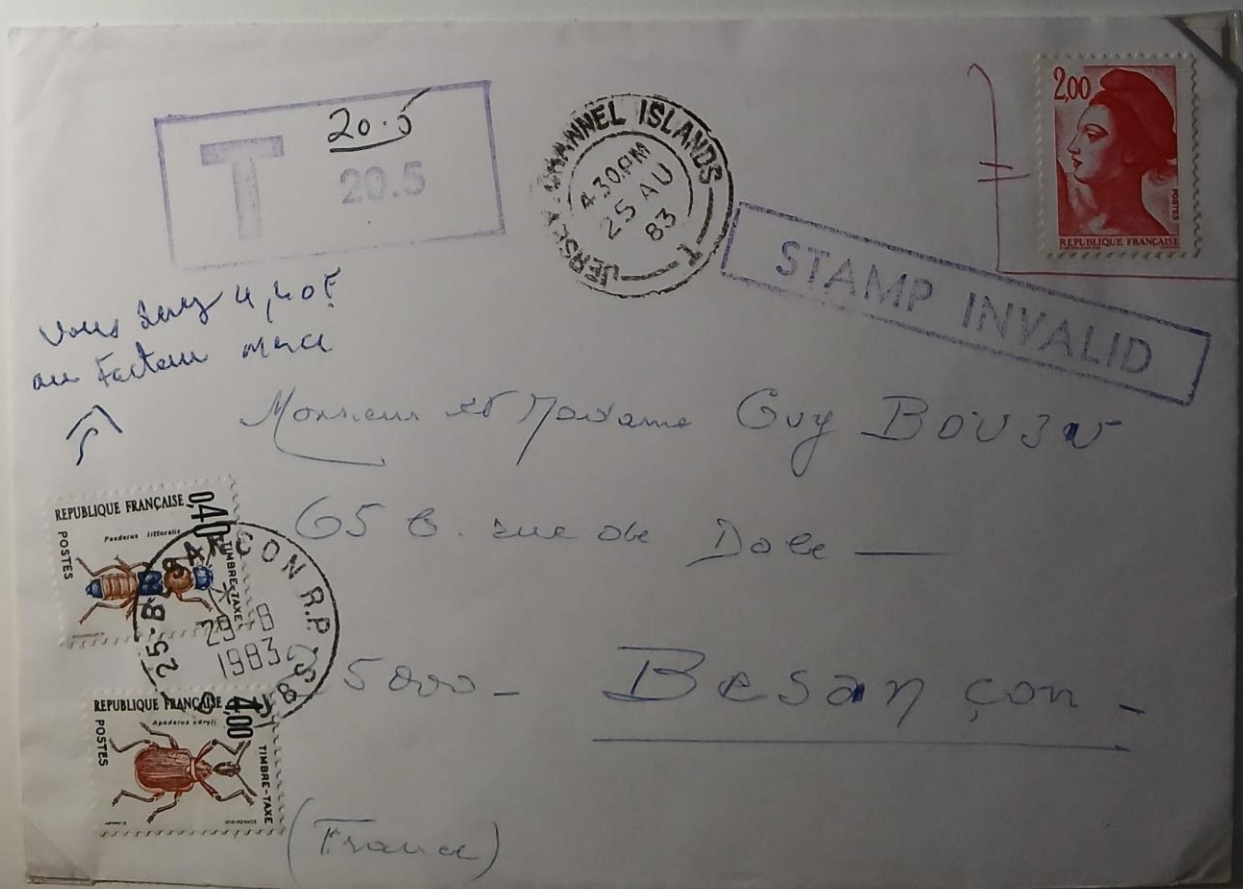 T
20.5
20.5
JERSEY. CHANNEL ISLANDS
4 30 PM
25 AU
83
T
2,00
POSTES
REPUBLIQUE FRANÇAISE
STAMP INVALID
Vous 4,40F
au Facteur merci
Monsieur et Madame Guy
65 B. rue de Dole
25000 - Besançon -
(France)
REPUBLIQUE FRANÇAISE
0,40
POSTES
Paederus littoralis
TIMBRE-TAXE
25-BESANCON R.P.
29-8
1983
REPUBLIQUE FRANÇAISE
4,00
POSTES
Apoderus coryli
TIMBRE-TAXE